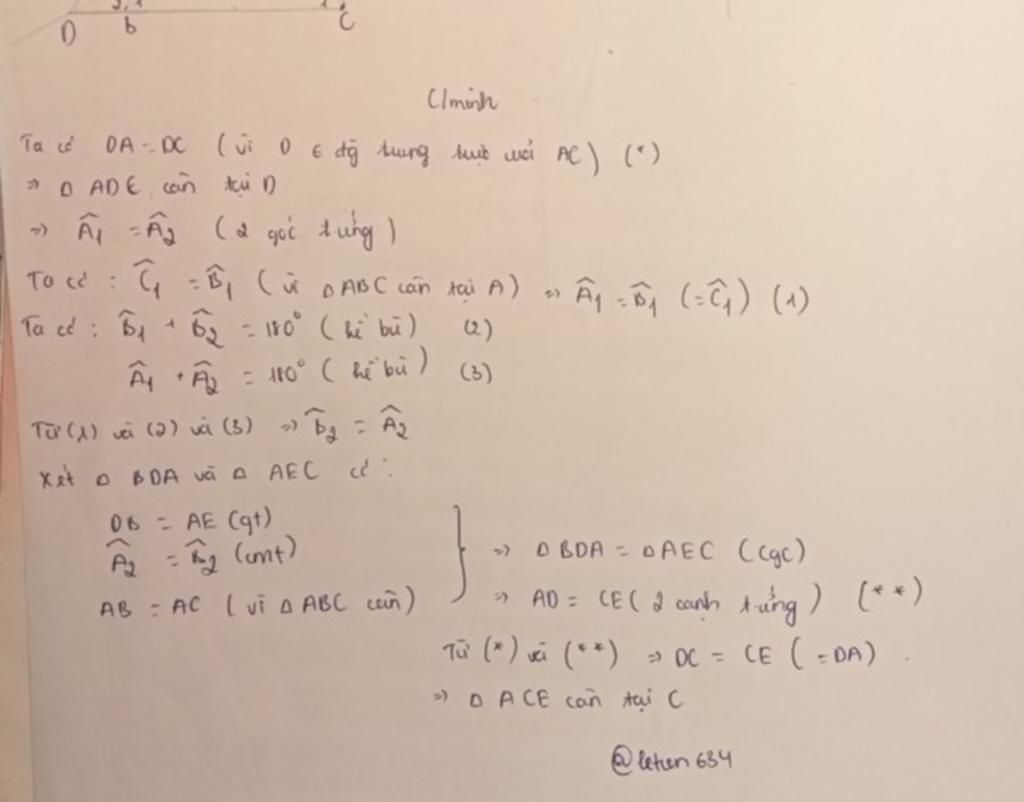 D b C
C/minh
Ta có DA = DC ( vì D ∈ đg trung trực của AC) (*)
⇒ Δ ADE cân tại D
⇒ Â₁ = Â₂ ( 2 góc tướng )
Ta có : Ĉ₁ = B̂₁ ( vì Δ ABC cân tại A) ⇒ Â₁ = B̂₁ (= Ĉ₁ ) (1)
Ta có : B̂₁ + B̂₂ = 180° ( kề bù ) (2)
Â₁ + Â₂ = 180° ( kề bù ) (3)
Từ (1) và (2) và (3) ⇒ B̂₂ = Â₂
Xét Δ BDA và Δ AEC có :
DB = AE (gt)
Â₂ = B̂₂ (cmt) ⇒ Δ BDA = Δ AEC (cgc)
AB = AC ( vì Δ ABC cân ) } ⇒ AD = CE ( 2 cạnh tướng ) (**)
Từ (*) và (**) ⇒ DC = CE ( = DA) .
⇒ Δ ACE cân tại C
@letien634